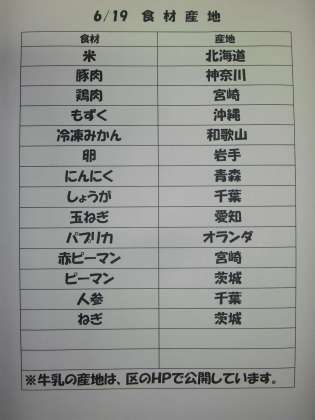 6/19 食材産地
食材 産地
米 北海道
豚肉 神奈川
鶏肉 宮崎
もずく 沖縄
冷凍みかん 和歌山
卵 岩手
にんにく 青森
しょうが 千葉
玉ねぎ 愛知
パプリカ オランダ
赤ピーマン 宮崎
ピーマン 茨城
人参 千葉
ねぎ 茨城
※牛乳の産地は、区のHPで公開しています。